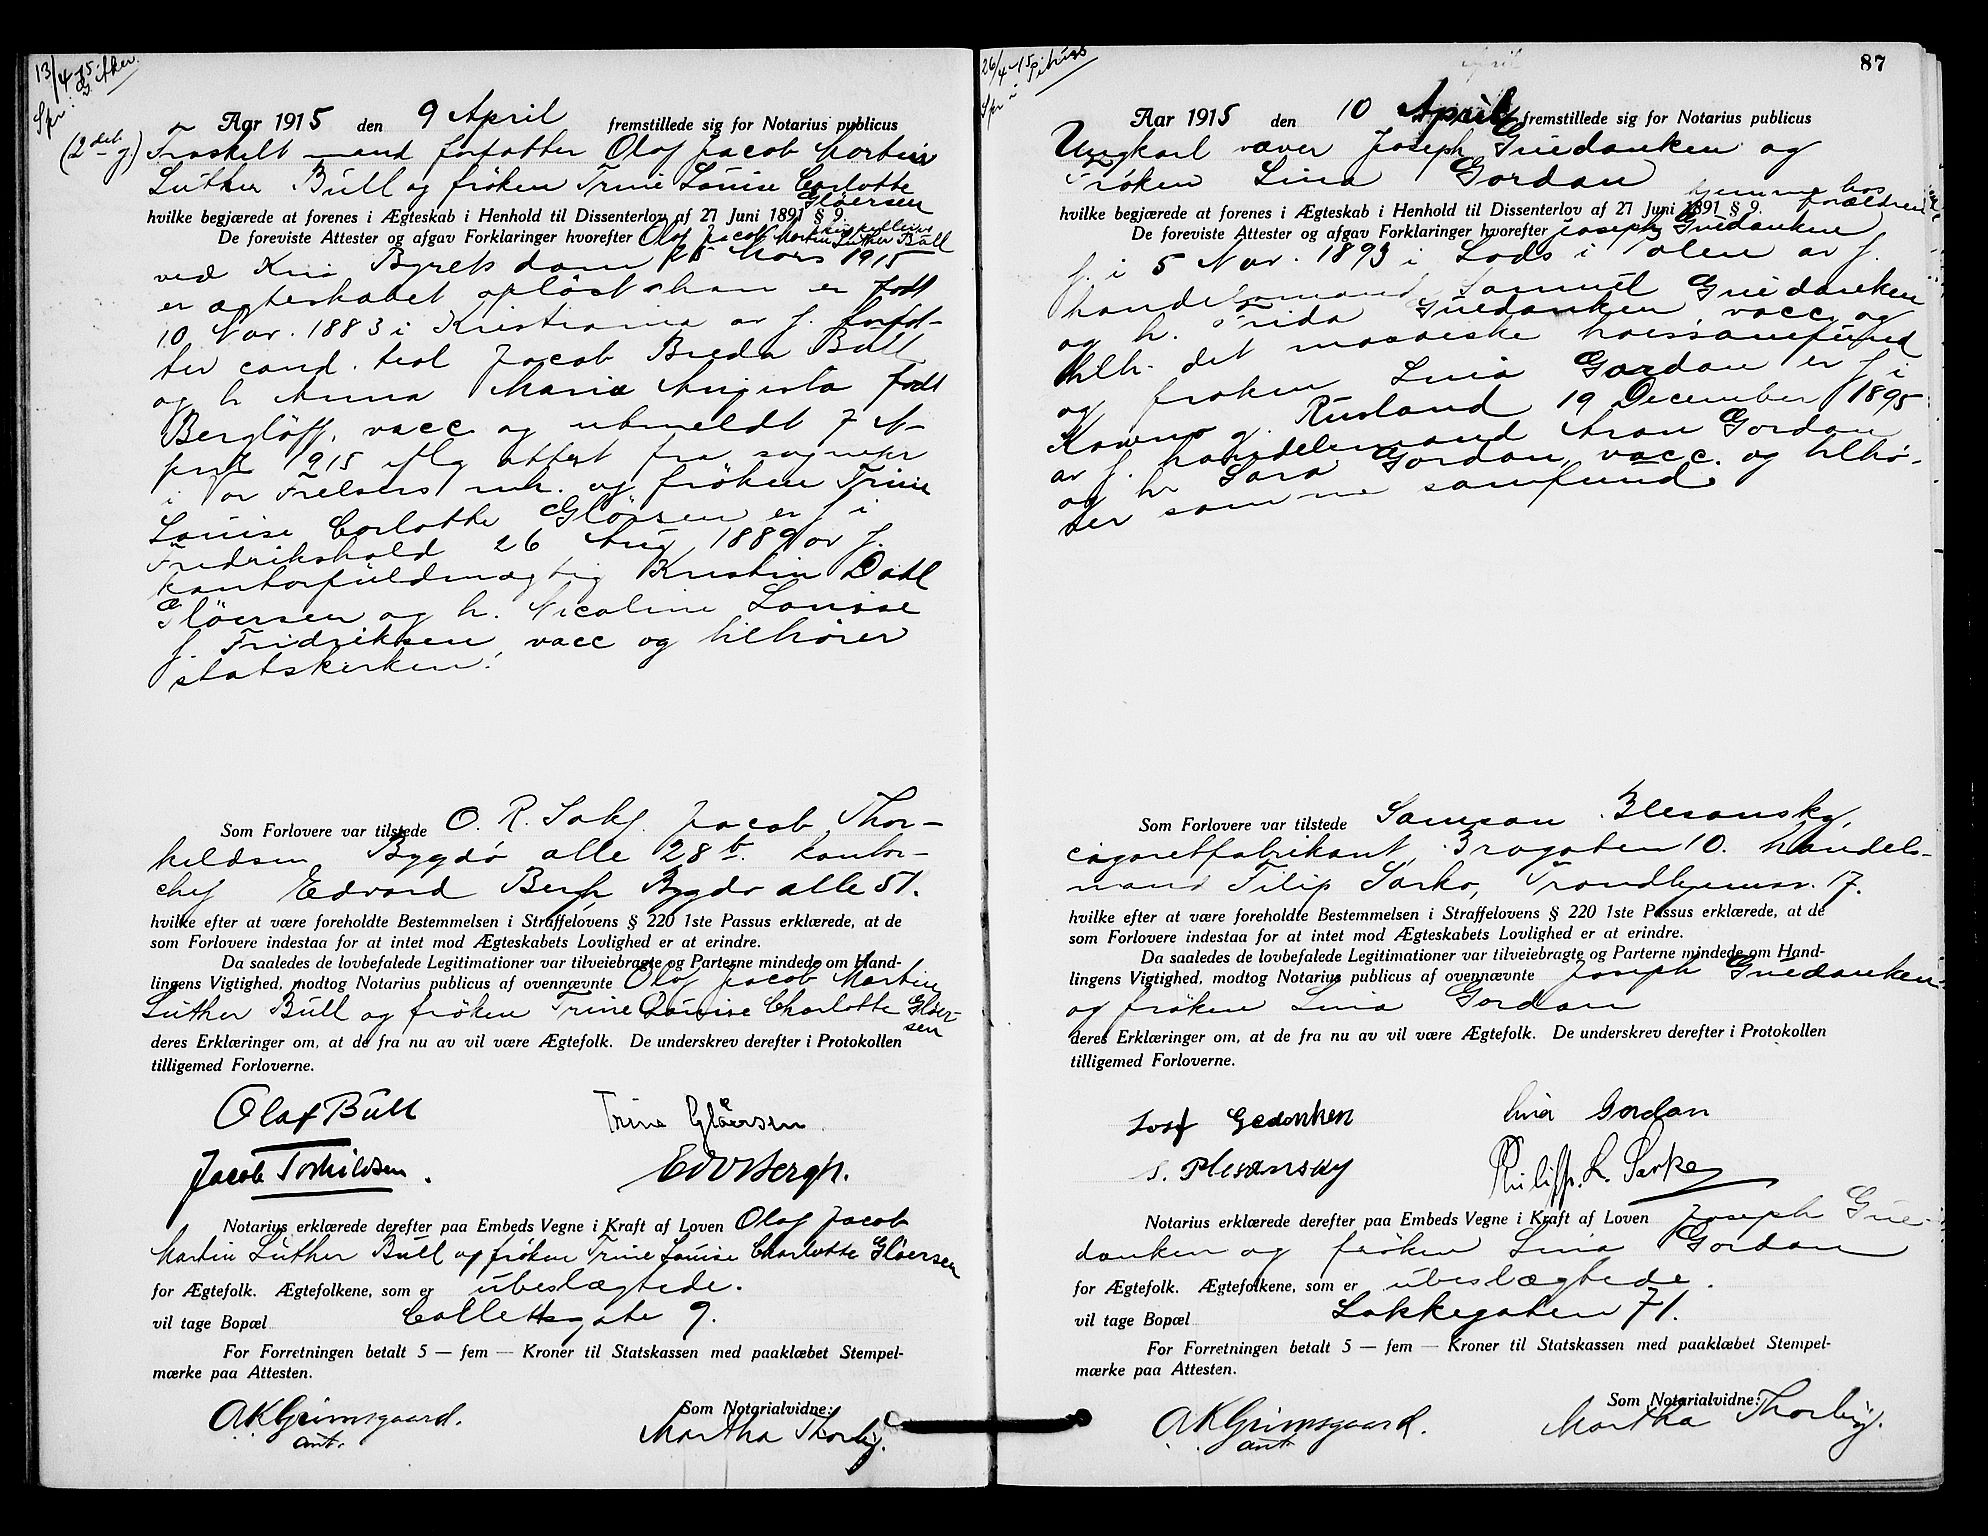 13/4 15
Spr i G. Aker.
(2det g)
Aar 1915 den 9 April fremstillede sig for Notarius publicus
Fraskilt mand forfatter Olof Jacob Martin
Luther Bull og frøken Trine Louise Carlotte
Gløersen
hvilke begjærede at forenes i Ægteskab i Henhold til Dissenterlov af 27 Juni 1891 § 9.
De foreviste Attester og afgav Forklaringer hvorefter Olof Jacob Martin Luther Bull
ved Kria Byrets dom 25 Mars 1915
er ægteskabet opløst han er født
10 Nov. 1883 i Kristiania av f. forfat-
ter cand. teol Jacob Breda Bull
og h Anna Maria Augusta født
Berglöff, vacc og utmeldt 7 A-
pril 1915 iflg attest fra sognepr
i Vor Frelsers mh. og frøken Trine
Louise Carlotte Gløersen er f i
Fredrikshald 26 Aug 1889 av f.
kontorfuldmægtig Kristin Dahl
Gløersen og h. Nicoline Louise
f. Fridriksen, vacc og tilhører
statskirken.
Som Forlovere var tilstede O. R. Sakf. Jacob Thor-
kildsen Bygdø alle 28b. kontor-
chef Edvard Bergh Bygdø alle 51.
hvilke efter at være foreholdte Bestemmelsen i Straffelovens § 220 1ste Passus erklærede, at de
som Forlovere indestaa for at intet mod Ægteskabets Lovlighed er at erindre.
Da saaledes de lovbefalede Legitimationer var tilveiebragte og Parterne mindede om Hand-
lingens Vigtighed, modtog Notarius publicus af ovennævnte Olof Jacob Martin
Luther Bull og frøken Trine Louise Charlotte Gløer-
sen
deres Erklæringer om, at de fra nu av vil være Ægtefolk. De underskrev derefter i Protokollen
tilligemed Forloverne.
Olaf Bull Trine Gløersen
Jacob Torkildsen. Edv Bergh.
Notarius erklærede derefter paa Embeds Vegne i Kraft af Loven Olof Jacob
Martin Luther Bull og frøken Trine Louise Charlotte Gløersen
for Ægtefolk. Ægtefolkene, som er ubeslægtede.
vil tage Bopæl Collettsgate 9.
For Forretningen betalt 5 — fem — Kroner til Statskassen med paaklæbet Stempel-
mærke paa Attesten.
AKGrimsgaard. Som Notarialvidne:
aut. Martha Thorby.
26/4-15
Spr i
87
Aar 1915 den 10 April fremstillede sig for Notarius publicus
Ungkarl væver Joseph Guedanken og
Frøken Lina Gordan
hjemme hos
forældrene
hvilke begjærede at forenes i Ægteskab i Henhold til Dissenterlov af 27 Juni 1891 § 9.
De foreviste Attester og afgav Forklaringer hvorefter Joseph Guedanken
f. i 5 Nov. 1893 i Lods i Polen av f.
handelsmand Samuel Guedanken
og h. Frida Guedanken, vacc og
tilh. det mosaiske troessamfund
og frøken Lina Gordan er f i
Kowno g. Rusland 19 December 1895
av f. handelsmand Aron Gordan
og h. Sara Gordan, vacc. og tilhø-
rer samme samfund.
Som Forlovere var tilstede Samson Blesansky,
cigaretfabrikant, Brogaten 10. Handels-
mand Filip Sarko, Trondhjemsv. 17.
hvilke efter at være foreholdte Bestemmelsen i Straffelovens § 220 1ste Passus erklærede, at de
som Forlovere indestaa for at intet mod Ægteskabets Lovlighed er at erindre.
Da saaledes de lovbefalede Legitimationer var tilveiebragte og Parterne mindede om Hand-
lingens Vigtighed, modtog Notarius publicus af ovennævnte Joseph Guedanken
og frøken Lina Gordan
deres Erklæringer om, at de fra nu av vil være Ægtefolk. De underskrev derefter i Protokollen
tilligemed Forloverne.
Josf Gedanken Lina Gordan
S. Plesansky Philipp. L. Sarke
Notarius erklærede derefter paa Embeds Vegne i Kraft af Loven Joseph Gue-
danken og frøken Lina Gordan
for Ægtefolk. Ægtefolkene, som er ubeslægtede.
vil tage Bopæl Lakkegaten 71.
For Forretningen betalt 5 — fem — Kroner til Statskassen med paaklæbet Stempel-
mærke paa Attesten.
AKGrimsgaard. Som Notarialvidne:
aut Martha Thorby.